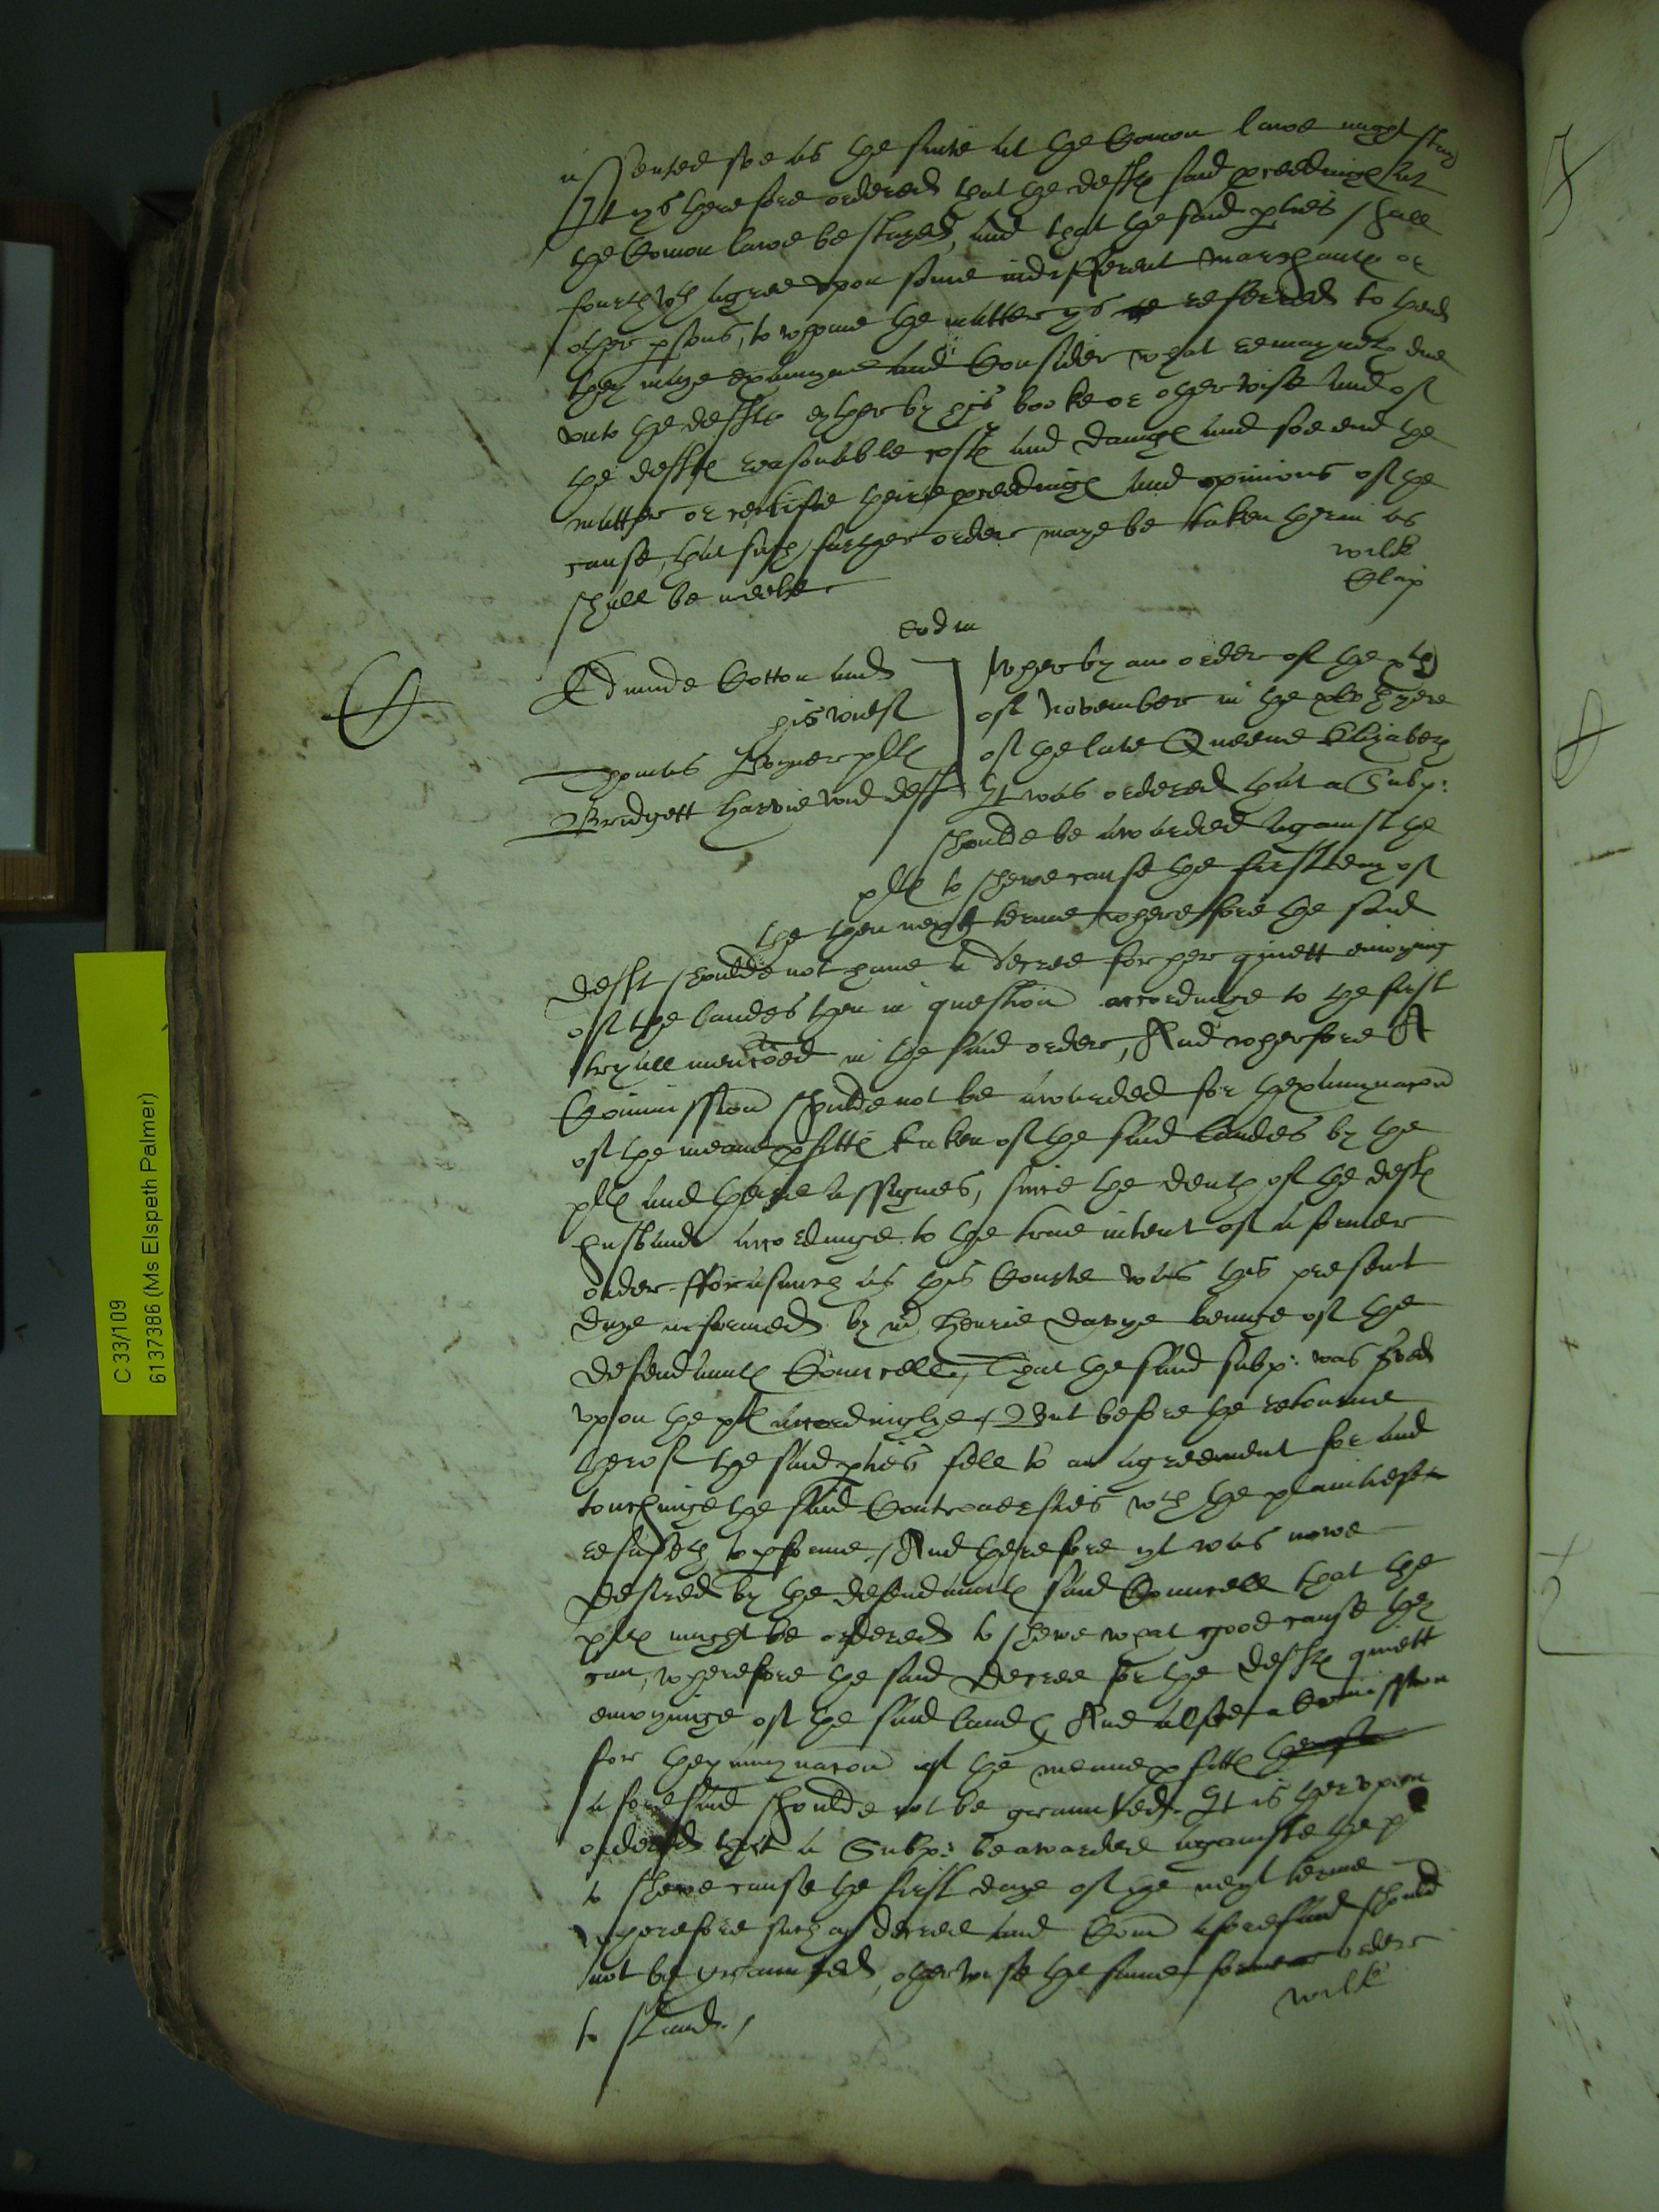 assented soe as the suite at the Comon lawe might stay
It ys therefore ordered that the deftes said proceedinges at
the Comon lawe be stayed, and that the said pties shall
fourthwth agree upon some indifferent marchauntes or
other psons, to whome the matter ys referred to thend
they maye examyne and Consider what remayneth due
unto the defte eyther by his booke or otherwise and of
the deftes reasonable costes and damges and soe end the
matter or certifie theire proceedinges and opinions of the
cause, that such further order maye be taken therin as
shall be meete
wilk
Clap
eodm
Edmunde Cotton and
his wief
Thomas pltes
Bridgett Harvie wid deft
Wher by an order of the
of November in the yere
of the late Queene Elizabeth
It was ordered that a Subp:
shoulde be awarded against the
pltes to shewe cause the first day of
the then next terme wherefore the said
deft shoulde not have a decree for her quiett enioying
of the landes then in question accordinge to the first
tryall mencoed in the said order, And wherfore A
Comission shoulde not be awarded for thexaminacon
of the meane pfittes taken of the said landes by the
pltes and theire assignes, since the death of the deftes
husband accordinge to the true intent of a former
order. fforasmuch as this Courte was this present
daye informed by mr Henrie Davye beinge of the
defendauntes Councell, That the said subp: was sved
upon the pltes accordinglye, But before the retourne
therof the said pties fell to an agreement for and
touchinge the said Controversies wch the plaintiefe
refuseth to pforme, And therefore yt was nowe
desired by the defendauntes said Councell that the
pltes might be ordered to shewe what good cause they
can, wherefore the said decree for the deftes quiett
enioyinge of the said landes, And alsoe a Comission
for thexaminacon of the meane pfittes therof
aforesaid shoulde not be graunted. It is therupon
ordered that a Subp: be awarded againste the pl
to shewe cause the first daye of the next terme
wherefore such a decree and Com aforesaid should
not be graunted, otherwise the same former order
to stand./
wilk
C 33/109
6137386 (Ms Elspeth Palmer)